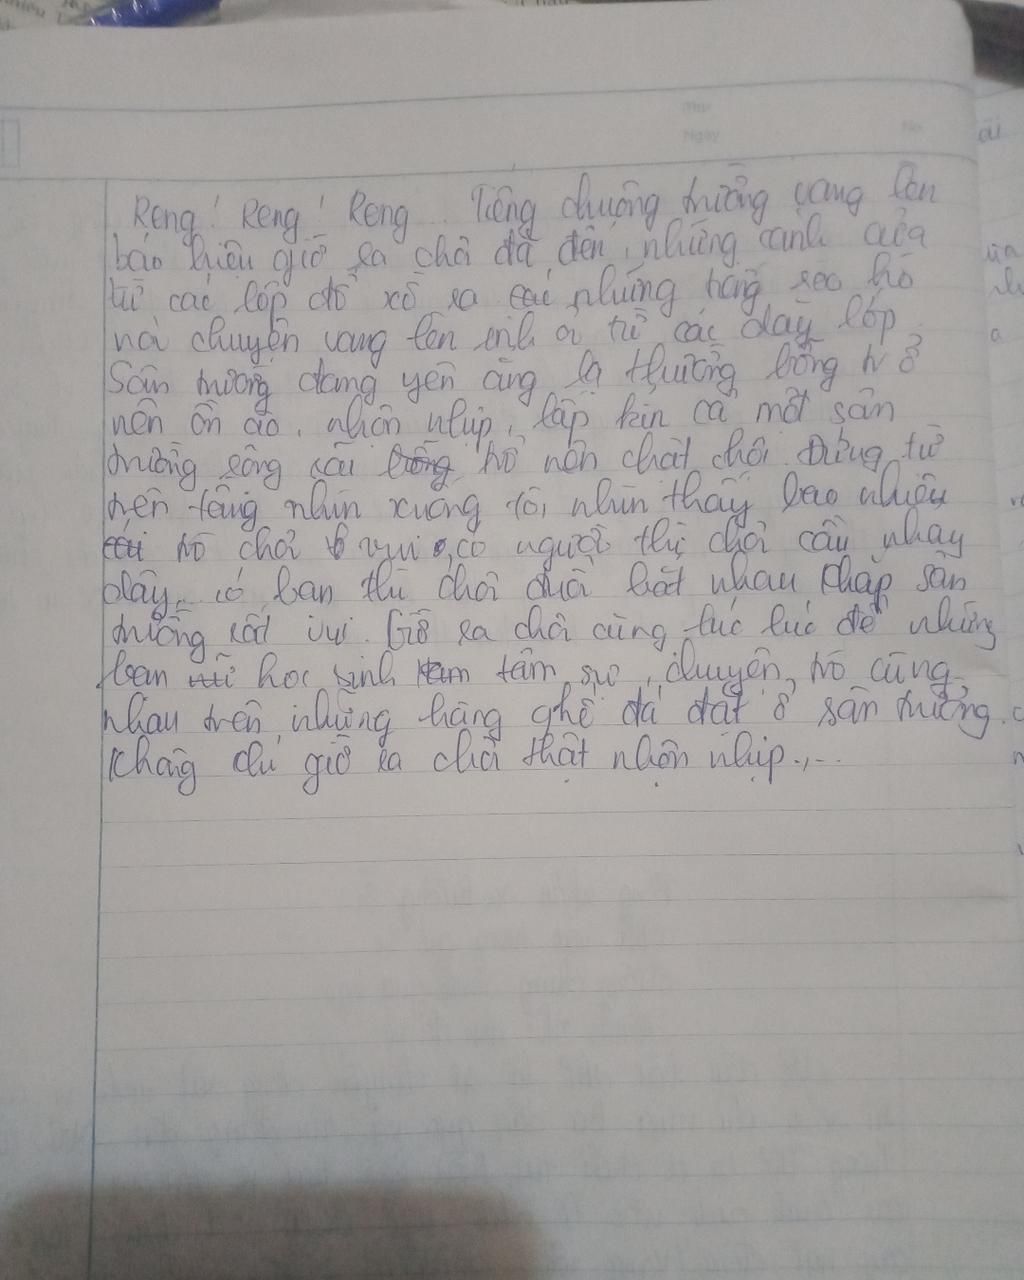 Reng! Reng! Reng... Tiếng chuông trường vang lên
báo hiệu giờ ra chơi đã đến, những cánh cửa
từ các lớp đổ xô ra những tiếng reo hò
nói chuyện vang lên inh ỏi từ các dãy lớp.
Sân trường đang yên ắng lạ thường bỗng trở
nên ồn ào, nhộn nhịp, lấp kín cả một sân
trường rộng rãi trở nên chật chội. Đứng từ
trên tầng nhìn xuống tôi nhìn thấy bao nhiêu
trò chơi vui, có người thì chơi cầu, nhảy
dây, có bạn thì chơi đuổi bắt nhau khắp sân
trường rất vui. Giờ ra chơi cũng là lúc để những
bạn học sinh tâm sự, chuyện trò cùng
nhau trên những hàng ghế đá đặt ở sân trường.
Không chỉ giờ ra chơi thật nhộn nhịp...